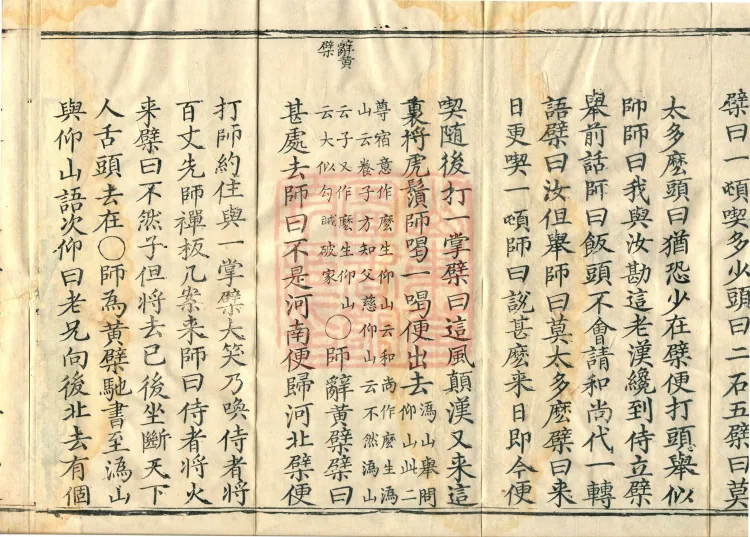 檗曰一頓喫多少頭曰二石五檗曰莫
太多麼頭曰猶恐少在檗便打頭舉似
師師曰我與汝勘這老漢纔到侍立檗
舉前話師曰飯頭不會請和尚代一轉
語檗曰汝但舉師曰莫太多麼檗曰來
日更喫一頓師曰說甚麼來日即今便
喫隨後打一掌檗曰這風顛漢又來這
裏捋虎鬚師喝一喝便出去
溈山舉問
仰山此二
尊宿意作麼生仰山云和尚作麼生溈
山云養子方知父慈仰山云不然溈山
云子又作麼生仰山
云大似勾賊破家
○師辭黃檗檗曰
辭黃
檗
甚處去師曰不是河南便歸河北檗便
打師約住與一掌檗大笑乃喚侍者將
百丈先師禪板几案來師曰侍者將火
來檗曰不然子但將去已後坐斷天下
人舌頭去在○師為黃檗馳書至溈山
與仰山語次仰曰老兄向後北去有個